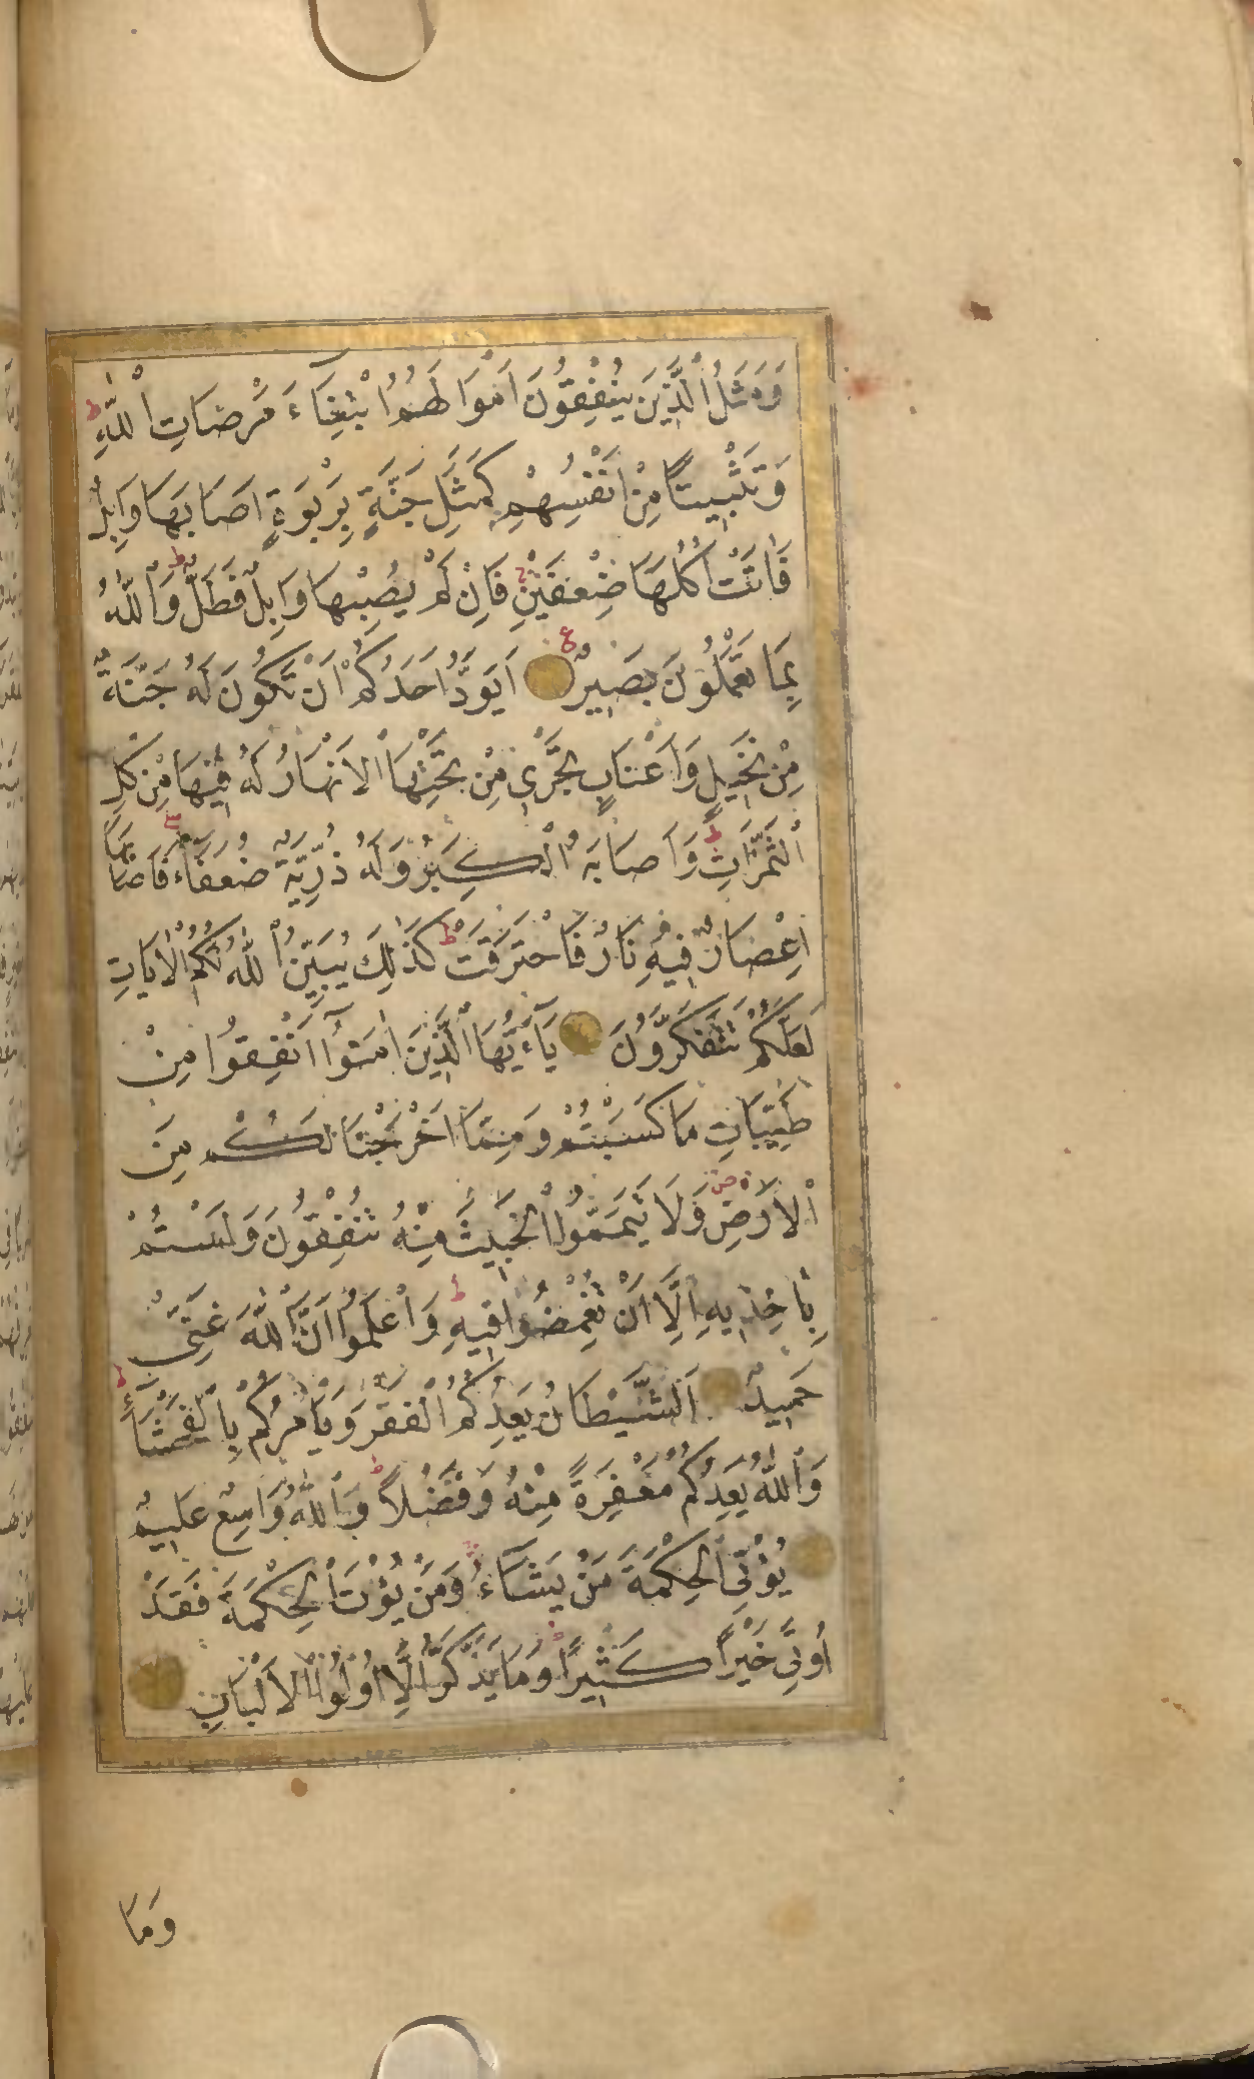 وَمَثَلُ الَّذِينَ يُنْفِقُونَ اَمْوَالَهُمُ ابْتِغَاءَ مَرْضَاتِ اللّٰهِ ط
وَتَثْبِيتًا مِنْ اَنْفُسِهِمْ كَمَثَلِ جَنَّةٍ بِرَبْوَةٍ اَصَابَهَا وَابِلٌ
فَاٰتَتْ اُكُلَهَا ضِعْفَيْنِ فَاِنْ لَمْ يُصِبْهَا وَابِلٌ فَطَلٌّ ط وَاللّٰهُ
بِمَا تَعْمَلُونَ بَصِيرٌ ع اَيَوَدُّ اَحَدُكُمْ اَنْ تَكُونَ لَهُ جَنَّةٌ
مِنْ نَخِيلٍ وَاَعْنَابٍ تَجْرِي مِنْ تَحْتِهَا الْاَنْهَارُ لَهُ فِيهَا مِنْ كُلِّ
الثَّمَرَاتِ ط وَاَصَابَهُ الْكِبَرُ وَلَهُ ذُرِّيَّةٌ ضُعَفَاءُ فَاَصَابَهَا
اِعْصَارٌ فِيهِ نَارٌ فَاحْتَرَقَتْ ط كَذٰلِكَ يُبَيِّنُ اللّٰهُ لَكُمُ الْاٰيَاتِ
لَعَلَّكُمْ تَتَفَكَّرُونَ يَآءَيُّهَا الَّذِينَ اٰمَنُوٓا اَنْفِقُوا مِنْ
طَيِّبَاتِ مَا كَسَبْتُمْ وَمِمَّا اَخْرَجْنَا لَكُمْ مِنَ
الْاَرْضِ ص وَلَا تَيَمَّمُوا الْخَبِيثَ مِنْهُ تُنْفِقُونَ وَلَسْتُمْ
بِاٰخِذِيهِ اِلَّا اَنْ تُغْمِضُوا فِيهِ ط وَاعْلَمُوا اَنَّ اللّٰهَ غَنِيٌّ
حَمِيدٌ اَلشَّيْطَانُ يَعِدُكُمُ الْفَقْرَ وَيَأْمُرُكُمْ بِالْفَحْشَاءِ ط
وَاللّٰهُ يَعِدُكُمْ مَغْفِرَةً مِنْهُ وَفَضْلًا ط وَاللّٰهُ وَاسِعٌ عَلِيمٌ
يُؤْتِي الْحِكْمَةَ مَنْ يَشَاءُ وَمَنْ يُؤْتَ الْحِكْمَةَ فَقَدْ
اُوتِيَ خَيْرًا كَثِيرًا ط وَمَا يَذَّكَّرُ اِلَّا اُولُوا الْاَلْبَابِ
وَمَا